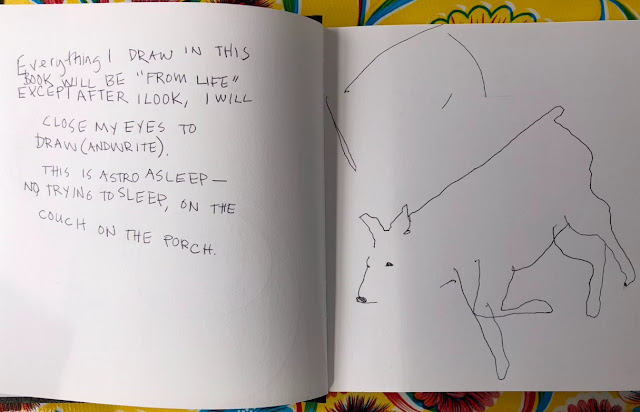 Everything I DRAW IN THIS
BOOK WILL BE "FROM LIFE"
EXCEPT AFTER I LOOK, I WILL
CLOSE MY EYES TO
DRAW (AND WRITE).
THIS IS ASTRO ASLEEP—
NO, TRYING TO SLEEP, ON THE
COUCH ON THE PORCH.